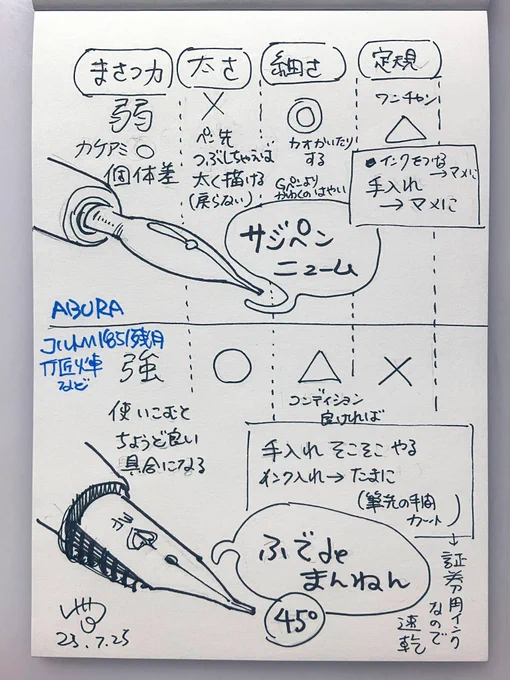 まさつ力
太さ
細さ
定規
弱
カケアミ○
個体差
×
ペン先
つぶしちゃえば
太く描ける
(戻らない)
◎
カオかいたり
する
Gペンより
かわくのはやい
ワンチャン
△
●インクをつける
→マメに
手入れ
→マメに
サジペン
ニューム
ABURA
強
使いこむと
ちょうど良い
具合になる
○
△
コンディション
良ければ
×
手入れ そこそこ やる
インク入れ→たまに
(筆先の手間
カート)
↓
証券用インク
なので
速乾
ふでde
まんねん
45°
23.7.25